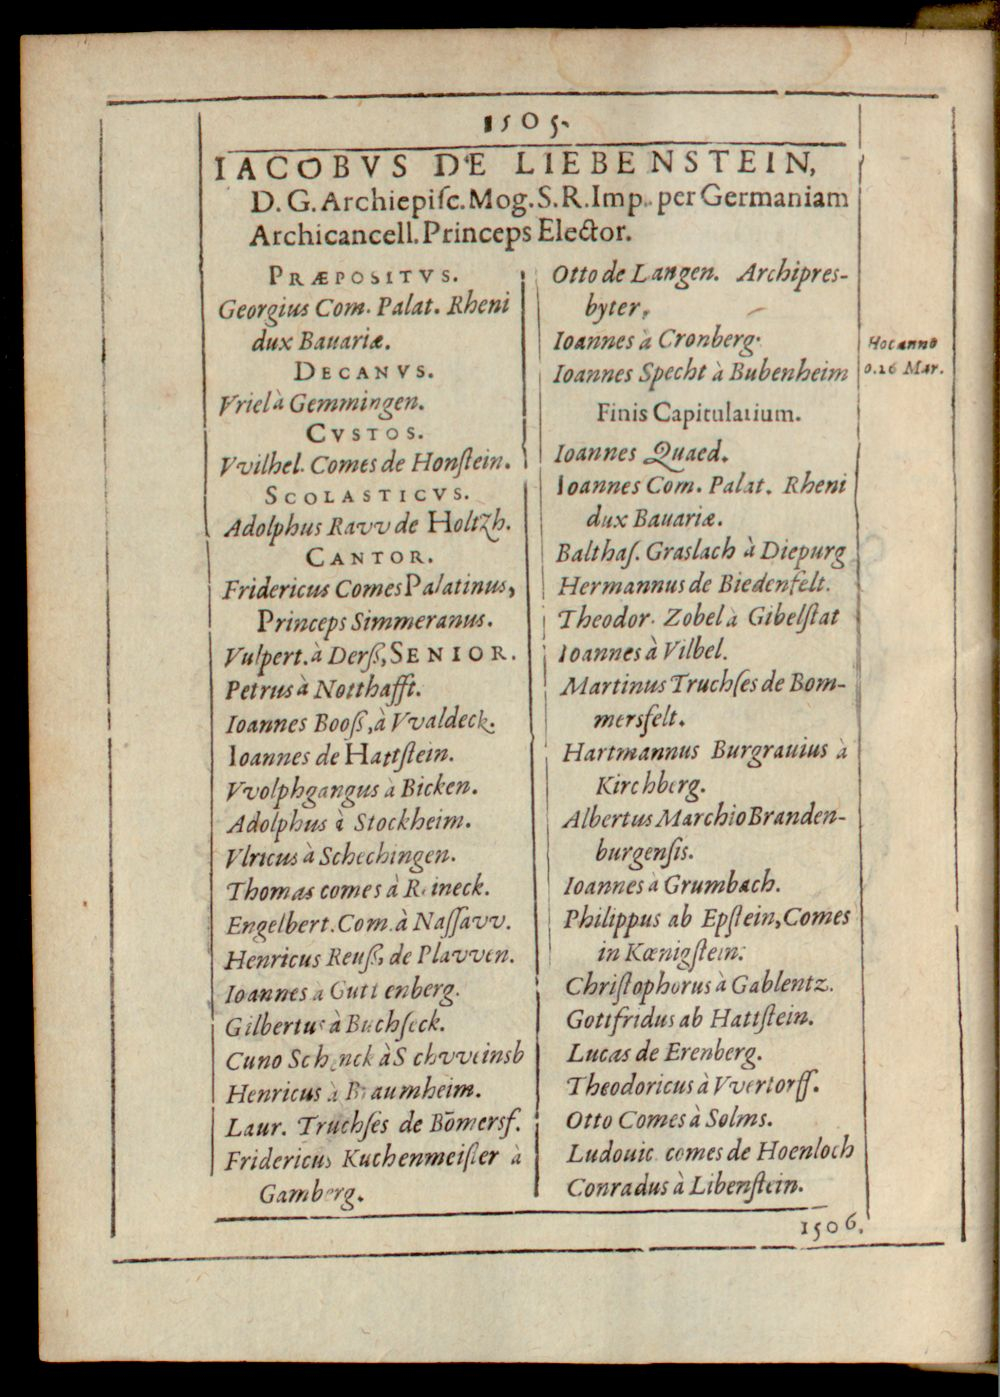 1505.
IACOBVS DE LIEBENSTEIN,
D. G. Archiepiſc. Mog. S. R. Imp. per Germaniam
Archicancell. Princeps Elector.
PRÆPOSITVS.
Georgius Com. Palat. Rheni
dux Bauariæ.
DECANVS.
Vriel à Gemmingen.
CVSTOS.
Vvilhel. Comes de Honſtein.
SCOLASTICVS.
Adolphus Ravv de Holtzh.
CANTOR.
Fridericus Comes Palatinus,
Princeps Simmeranus.
Vulpert. à Derß, SENIOR.
Petrus à Notthafft.
Ioannes Booß, à Vvaldeck.
Ioannes de Hattſtein.
Vvolphgangus à Bicken.
Adolphus à Stockheim.
Vlricus à Schechingen.
Thomas comes à Reineck.
Engelbert. Com. à Naſſavv.
Henricus Reuß, de Plavven.
Ioannes à Guttenberg.
Gilbertus à Buchſeck.
Cuno Schenck à Schvveinsb
Henricus à Braumheim.
Laur. Truchſes de Bōmersf.
Fridericus Kuchenmeiſter à
Gamberg.
Otto de Langen. Archipres-
byter.
Ioannes à Cronberg.
Ioannes Specht à Bubenheim
Hoc anno
o. 26 Mar.
Finis Capitularium.
Ioannes Quaed.
Ioannes Com. Palat. Rheni
dux Bauariæ.
Balthaſ. Graslach à Diepurg
Hermannus de Biedenfelt.
Theodor. Zobel à Gibelſtat
Ioannes à Vilbel.
Martinus Truchſes de Bom-
mersfelt.
Hartmannus Burgrauius à
Kirchberg.
Albertus Marchio Branden-
burgenſis.
Ioannes à Grumbach.
Philippus ab Epſtein, Comes
in Kœnigſtein.
Chriſtophorus à Gablentz.
Gottfridus ab Hattſtein.
Lucas de Erenberg.
Theodoricus à Vvertorff.
Otto Comes à Solms.
Ludouic. comes de Hoenloch
Conradus à Libenſtein.
1506.